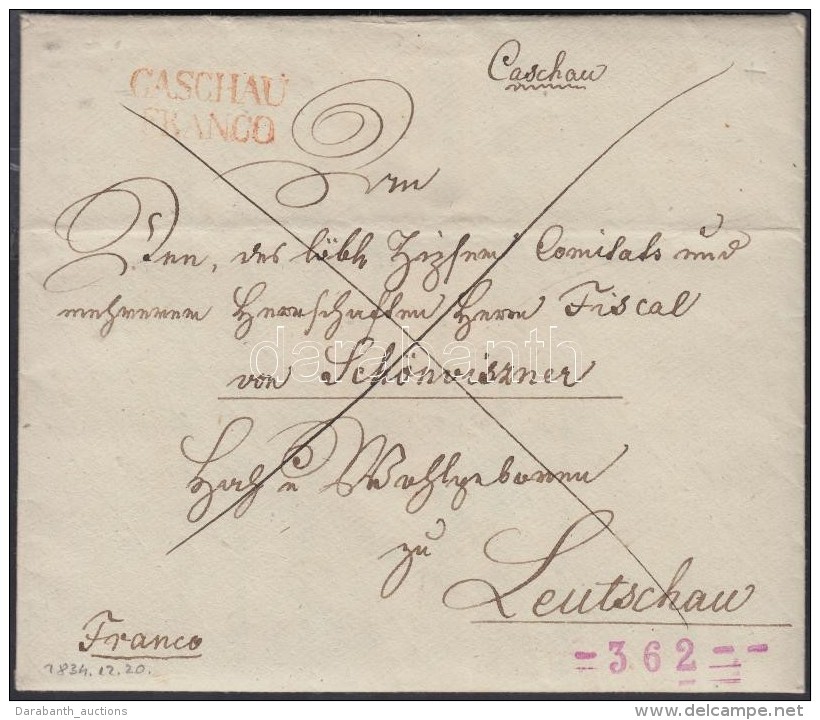 CASCHAU
FRANCO
Caschau
An
Den, des löbl. Zipser Comitats und
mehreren Herrschaften Herrn Fiscal
von Schönviszner
Hoch u Wohlgeboren
zu
Leutschau
Franco
1834.12.20.
-362--
darabanth
Darabanth_auctions
http://www.delcampe.net